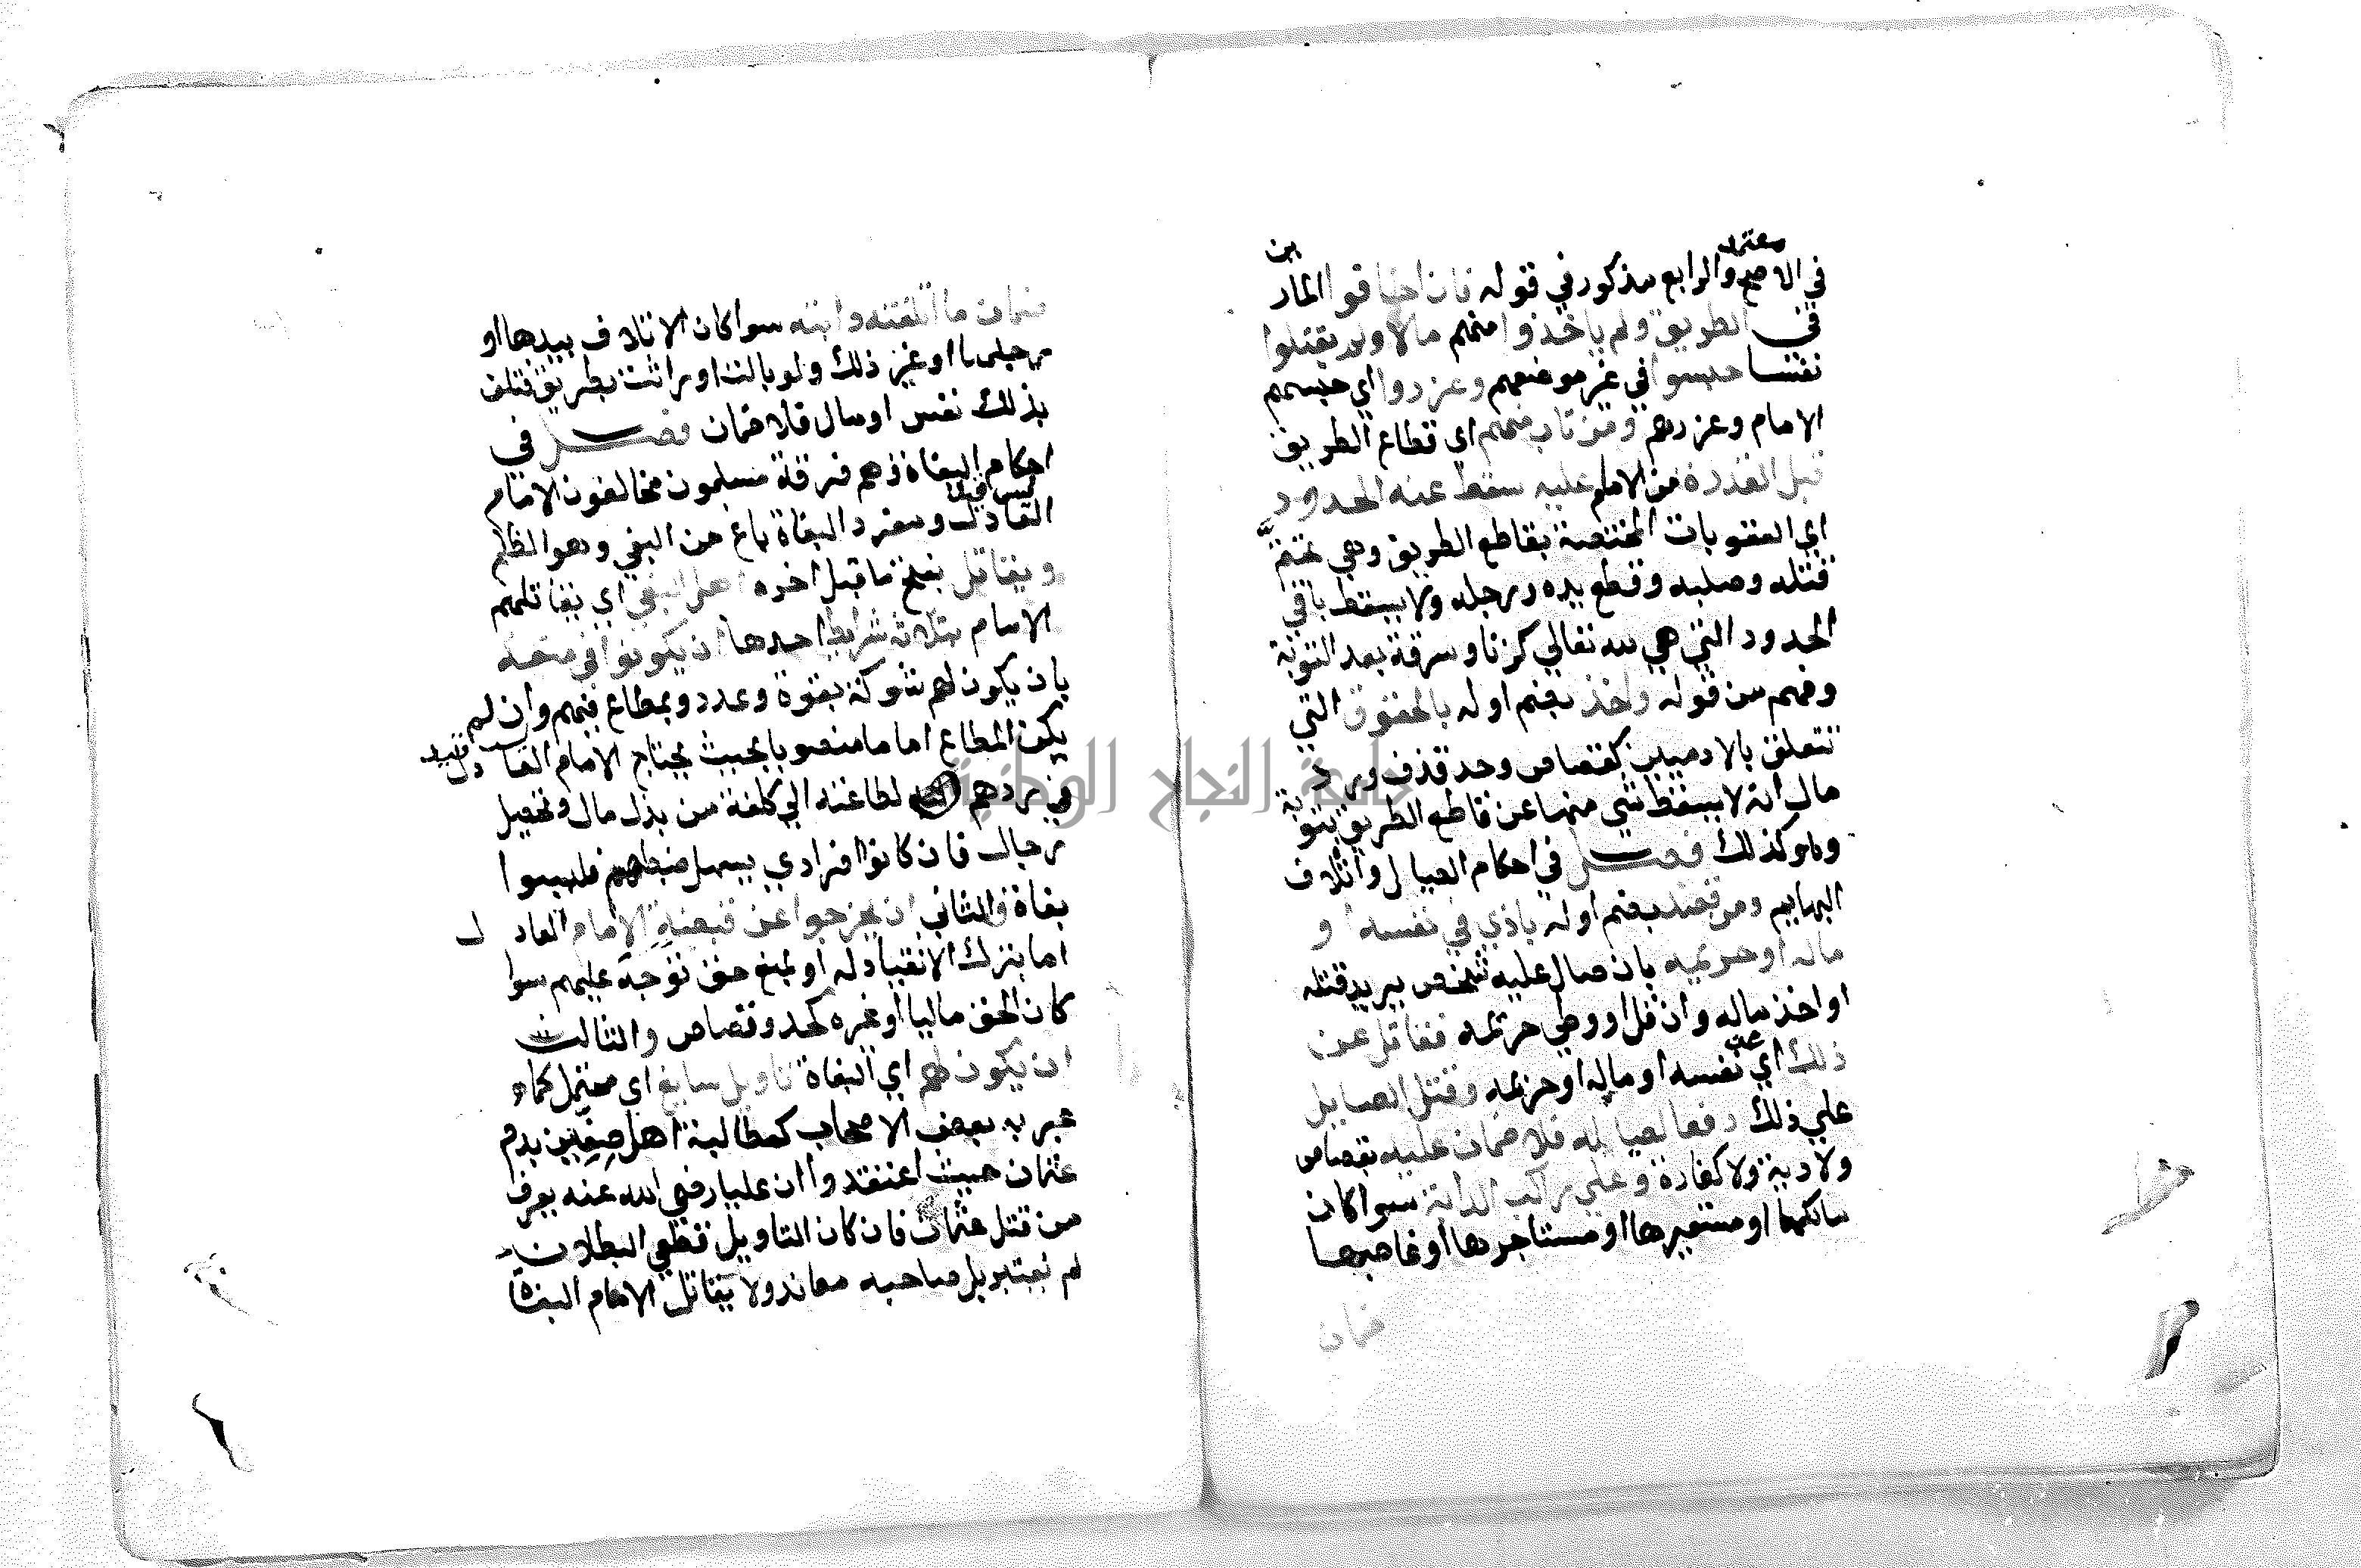 معتمد
في الاصح والرابع مذكور في قوله فان اخافوا المار
ين
في الطريق ولم ياخذوا منهم مالا ولم يقتلوا
نفسا حبسوا في غير موضعهم وعزروا اي حبسهم
الامام وعزرهم ومن تاب منهم اي قطاع الطريق
قبل القدرة من الامام عليه سقط عنه الحدود
اي العقوبات المختصة بقاطع الطريق وهي تحتم
قتله وصلبه وقطع يده ورجله ولا يسقط باقي
الحدود التي هي لله تعالي كزنا وسرقة بعد التوبة
وفهم من قوله واخذ بضم اوله بالحقوق التي
تتعلق بالادميين كقصاص وحد قذف ورد
مال انه لا يسقط شي منها عن قاطع الطريق بتوبة
وهو كذلك فصل في احكام الصيال واتلاف
البهايم ومن قصد بضم اوله باذي في نفسه او
ماله او حريمه بان صال عليه شخص يريد قتله
او اخذ ماله وان قل او وطي حريمه فقاتل عن
ذلك اي عن نفسه او ماله او حريمه وقتل الصايل
علي ذلك دفعا لصياله فلا ضمان عليه بقصاص
ولا دية ولا كفارة وعلي راكب الدابة سوا كان
مالكها او مستعيرها او مستاجرها او غاصبها
ضمان
ضمان ما اتلفته دابته سوا كان الاتلاف بيدها او
رجلها او غير ذلك ولو بالت او راثت بطريق فتلف
بذلك نفس او مال فلا ضمان فصل في
احكام البغاة وهم فرقة مسلمون مخالفون الامام
العادل ومفرد البغاة باغ من البغي وهو الظلم
ويقاتل بفتح ما قبل اخره اهل البغي اي يقاتلهم
الامام بثلاثة شرايط احدها ان يكونوا في منعة
بان يكون لهم شوكة بقوة وعدد وبمطاع فيهم وان لم
يكن المطاع اماما منصوبا بحيث يحتاج الامام العادل
في ردهم لطاعته الي كلفة من بذل مال وتحصيل
رجال فان كانوا افرادي يسهل ضبطهم فليسوا
بغاة والثاني ان يخرجوا عن قبضة الامام العادل
اما بترك الانقياد له او بمنع حق توجه عليهم سوا
كان الحق ماليا او غيره كحد وقصاص والثالث
ان يكون لهم اي البغاة تاويل سايغ اي محتمل كما
عبر به بعض الاصحاب كمطالبة اهل صفين بدم
عثمان حيث اعتقدوا ان عليا رضي الله عنه يعرف
من قتل عثمان فان كان التاويل قطعي البطلان
لم يعتبر بل صاحبه معاند ولا يقاتل الامام البغاة
جامعة النجاح الوطنية